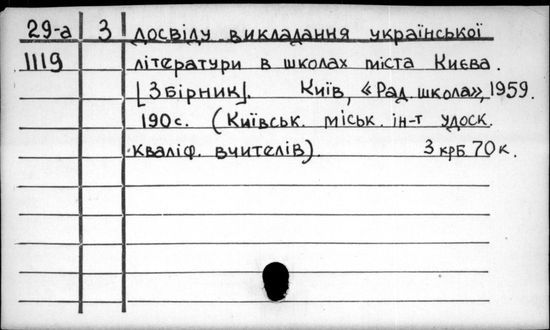 29-а 3 досвіду викладання української
1119 літератури в школах міста Києва.
[Збірник]. Київ, «Рад. школа», 1959.
190 с. (Київськ. міськ. ін-т удоск.
кваліф. вчителів). 3 крб. 70 к.